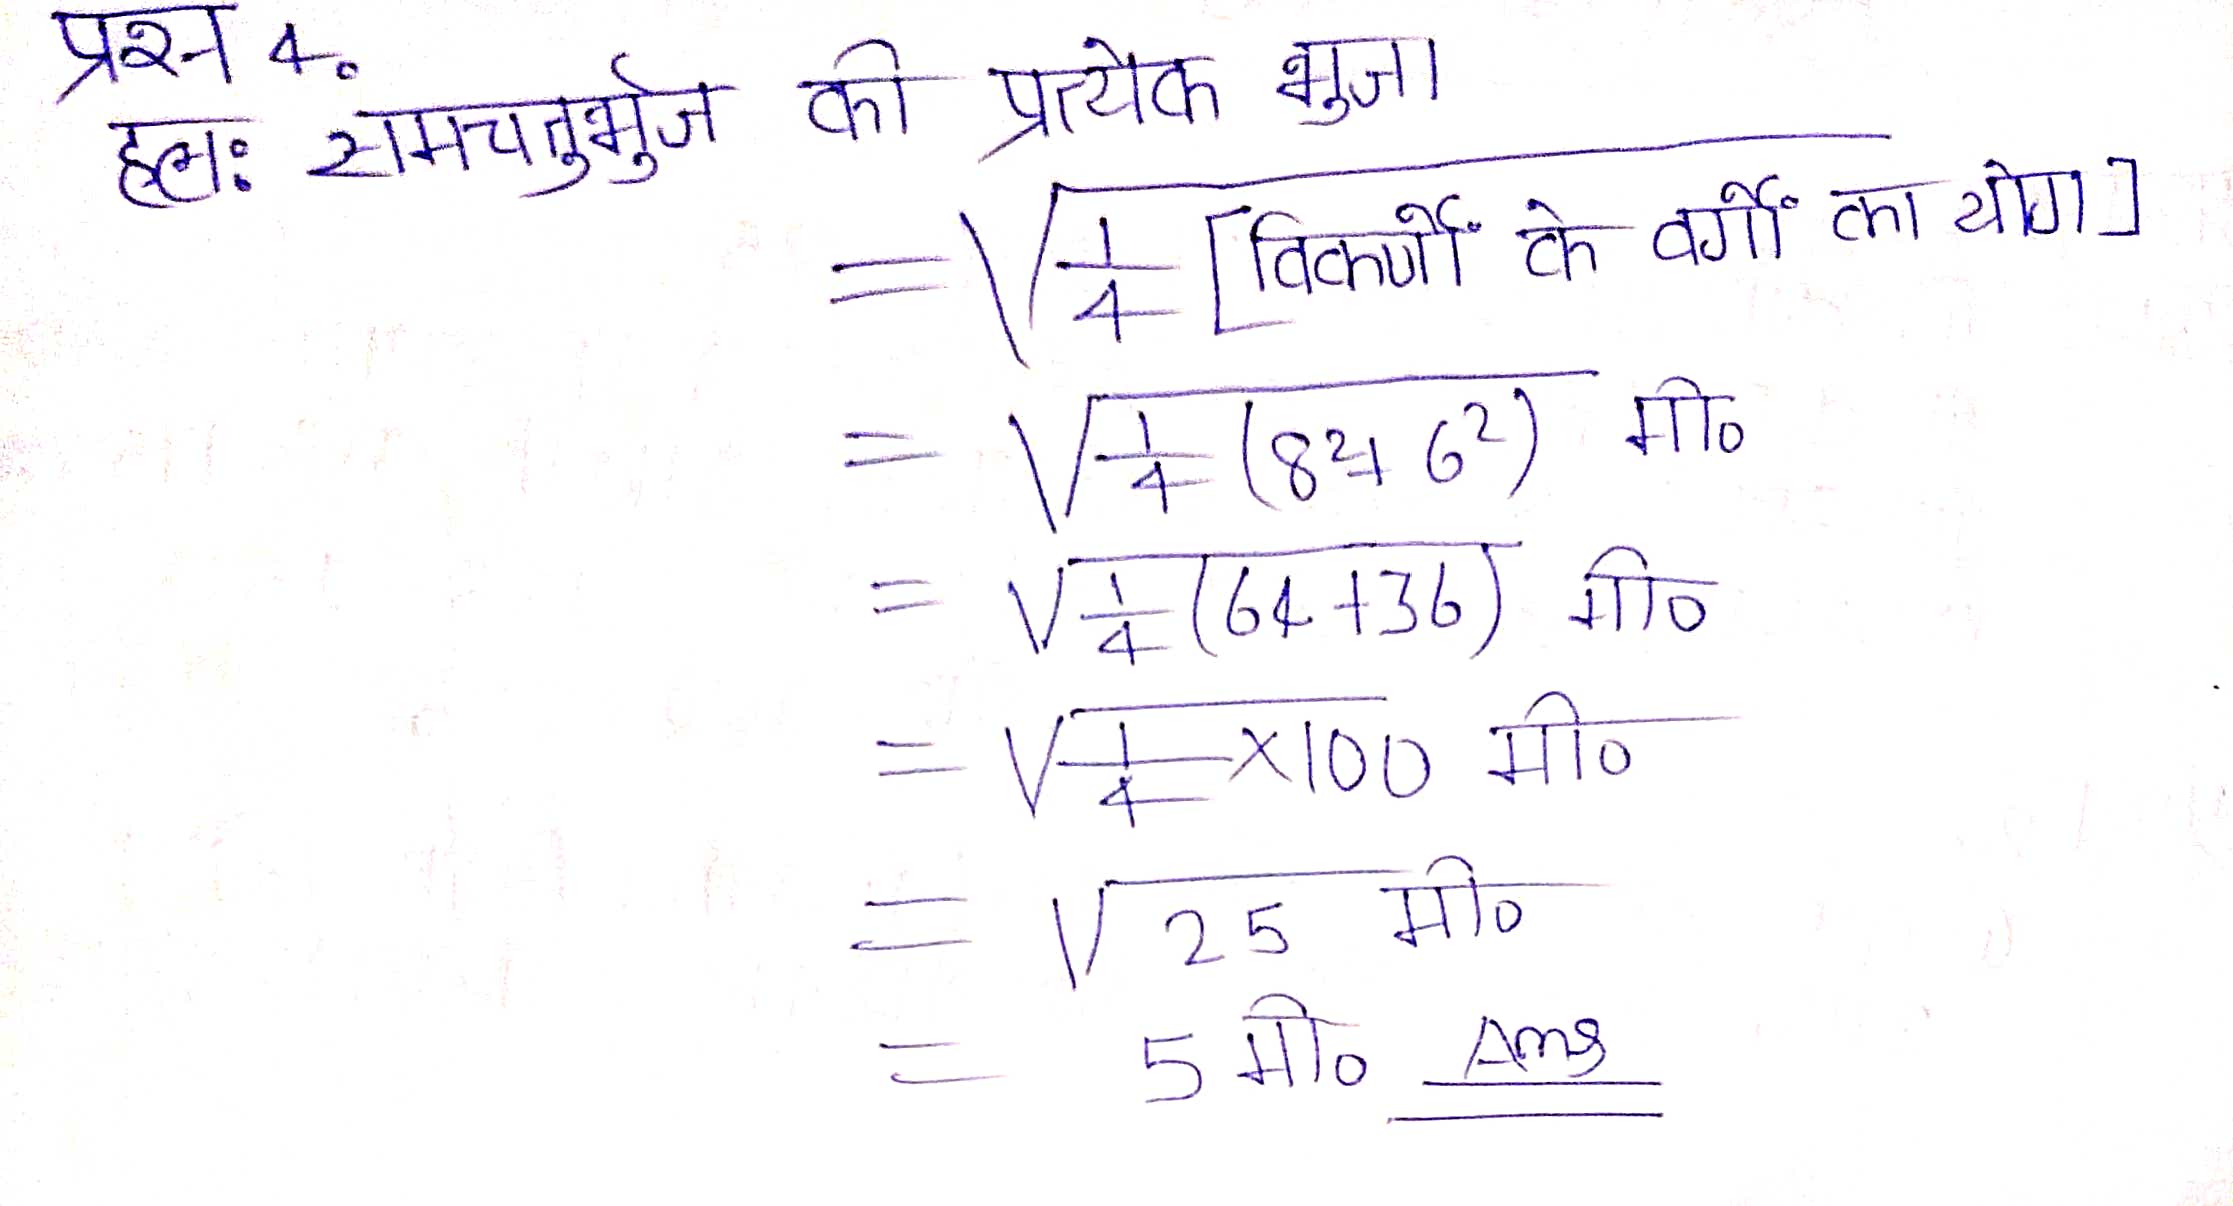 प्रश्न 4.
हल: समचतुर्भुज की प्रत्येक भुजा
= √1/4 [विकर्णों के वर्गों का योग]
= √1/4 (8²+ 6²) मी०
= √1/4 (64+36) मी०
= √1/4 ×100 मी०
= √25 मी०
= 5 मी० Ans